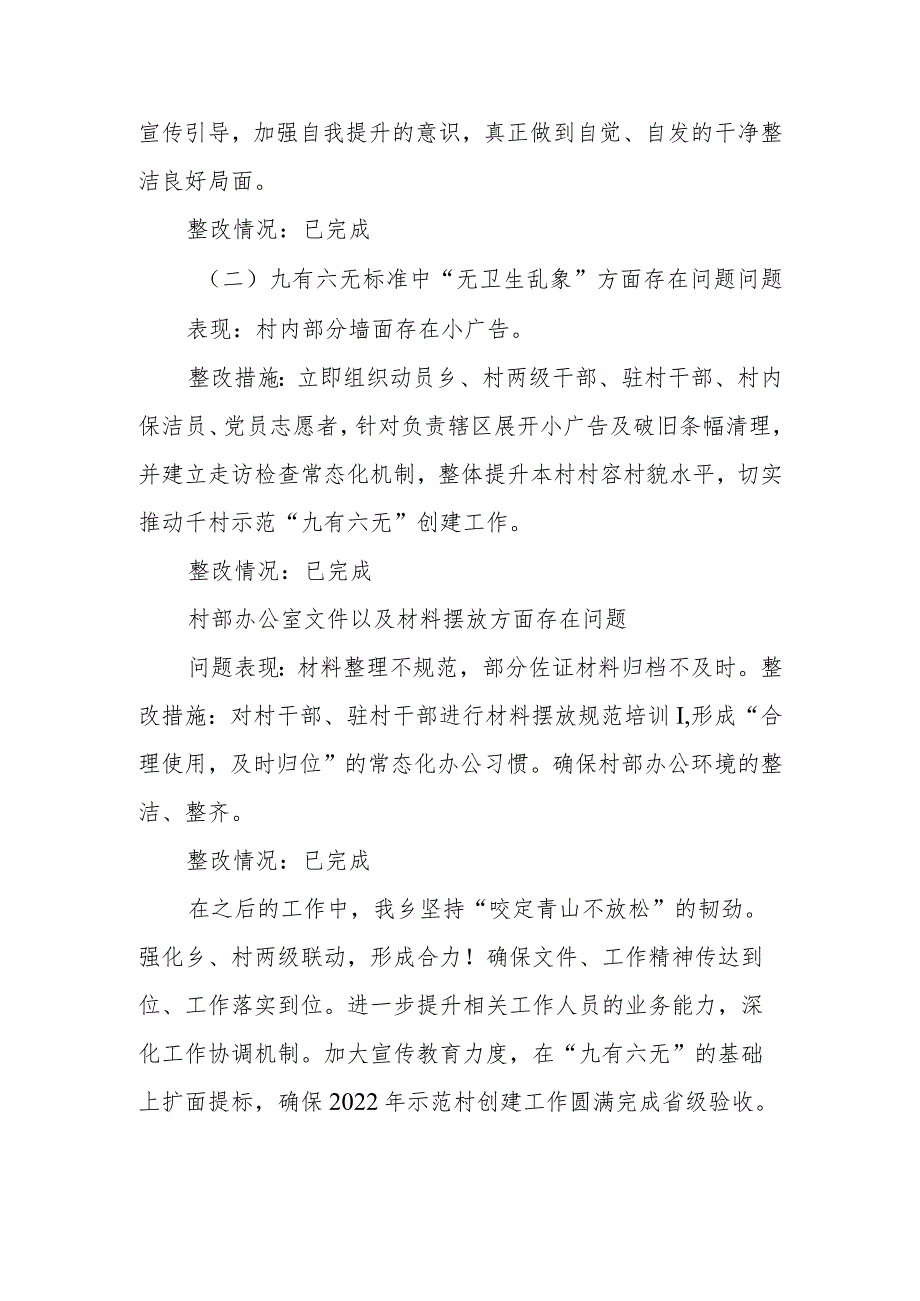 宣传引导，加强自我提升的意识，真正做到自觉、自发的干净整
洁良好局面。
整改情况：已完成
（二）九有六无标准中“无卫生乱象”方面存在问题问题
表现：村内部分墙面存在小广告。
整改措施：立即组织动员乡、村两级干部、驻村干部、村内
保洁员、党员志愿者，针对负责辖区展开小广告及破旧条幅清理，
并建立走访检查常态化机制，整体提升本村村容村貌水平，切实
推动千村示范“九有六无”创建工作。
整改情况：已完成
村部办公室文件以及材料摆放方面存在问题
问题表现：材料整理不规范，部分佐证材料归档不及时。整
改措施：对村干部、驻村干部进行材料摆放规范培训I,形成“合
理使用，及时归位”的常态化办公习惯。确保村部办公环境的整
洁、整齐。
整改情况：已完成
在之后的工作中，我乡坚持“咬定青山不放松”的韧劲。
强化乡、村两级联动，形成合力！确保文件、工作精神传达到
位、工作落实到位。进一步提升相关工作人员的业务能力，深
化工作协调机制。加大宣传教育力度，在“九有六无”的基础
上扩面提标，确保2022年示范村创建工作圆满完成省级验收。